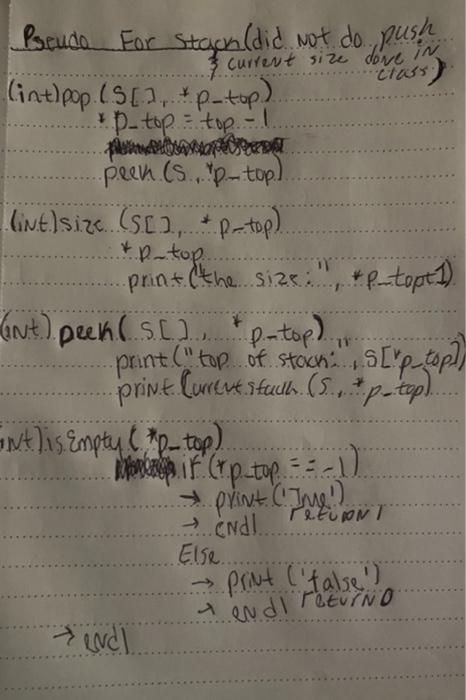 Pseudo For Stack (did not do push
& current size done in
class)
(int) pop (S[], *p_top)
*p_top = top - 1
peek (S, *p_top)
(int) size (S[], *p_top)
*p_top
print ("the size:", *p_top+1)
(int) peek (S[], *p_top)
print ("top of stack:", S[*p_top])
print Current stack (S, *p_top)
int) isEmpty (*p_top)
if (*p_top == -1)
→ print ('True')
→ endl return 1
Else
→ print ('false')
→ endl return 0
→ endl